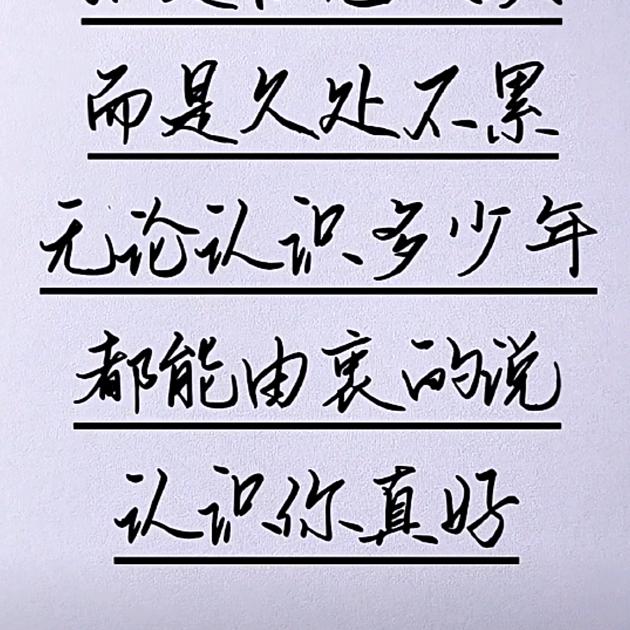 而是久处不累
无论认识多少年
都能由衷的说
认识你真好